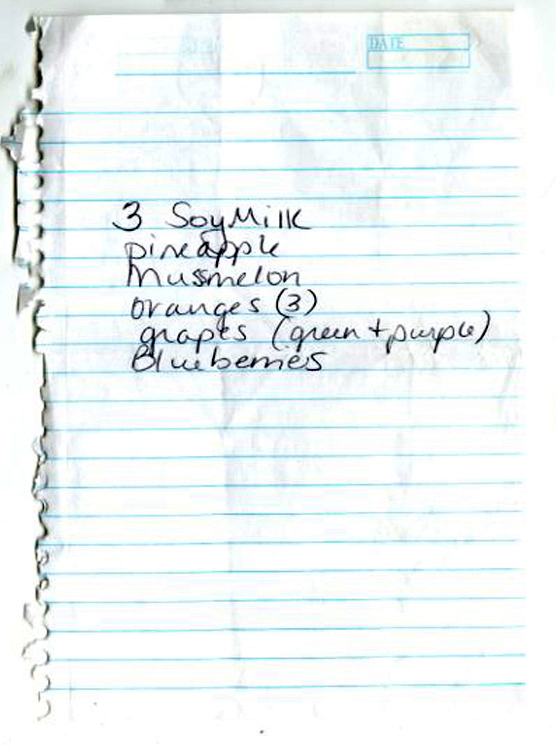 DATE
3 SoyMilk
pineapple
Musmelon
oranges (3)
grapes (green + purple)
Blueberries